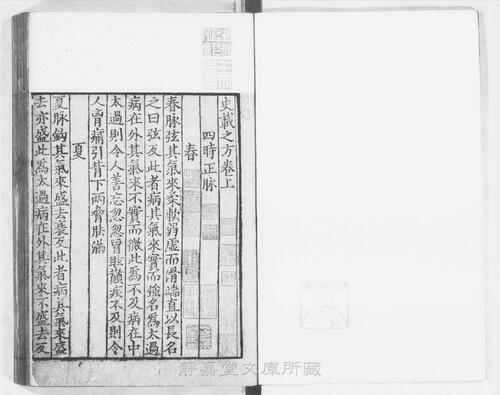 史載之方卷上
四時正脉
春
春脉弦其氣來柔軟弱虛而滑端直以長名
之曰弦反此者病其氣來實而強名爲太過
病在外其氣來不實而微此爲不及病在中
太過則令人善忘忽忽冒眩巓疾不及則令
人胷痛引背下兩脅胠滿
夏
夏脉鈎其氣來盛去衰反此者病其氣來盛
去亦盛此爲太過病在外其氣來不盛去反
靜嘉堂文庫所藏